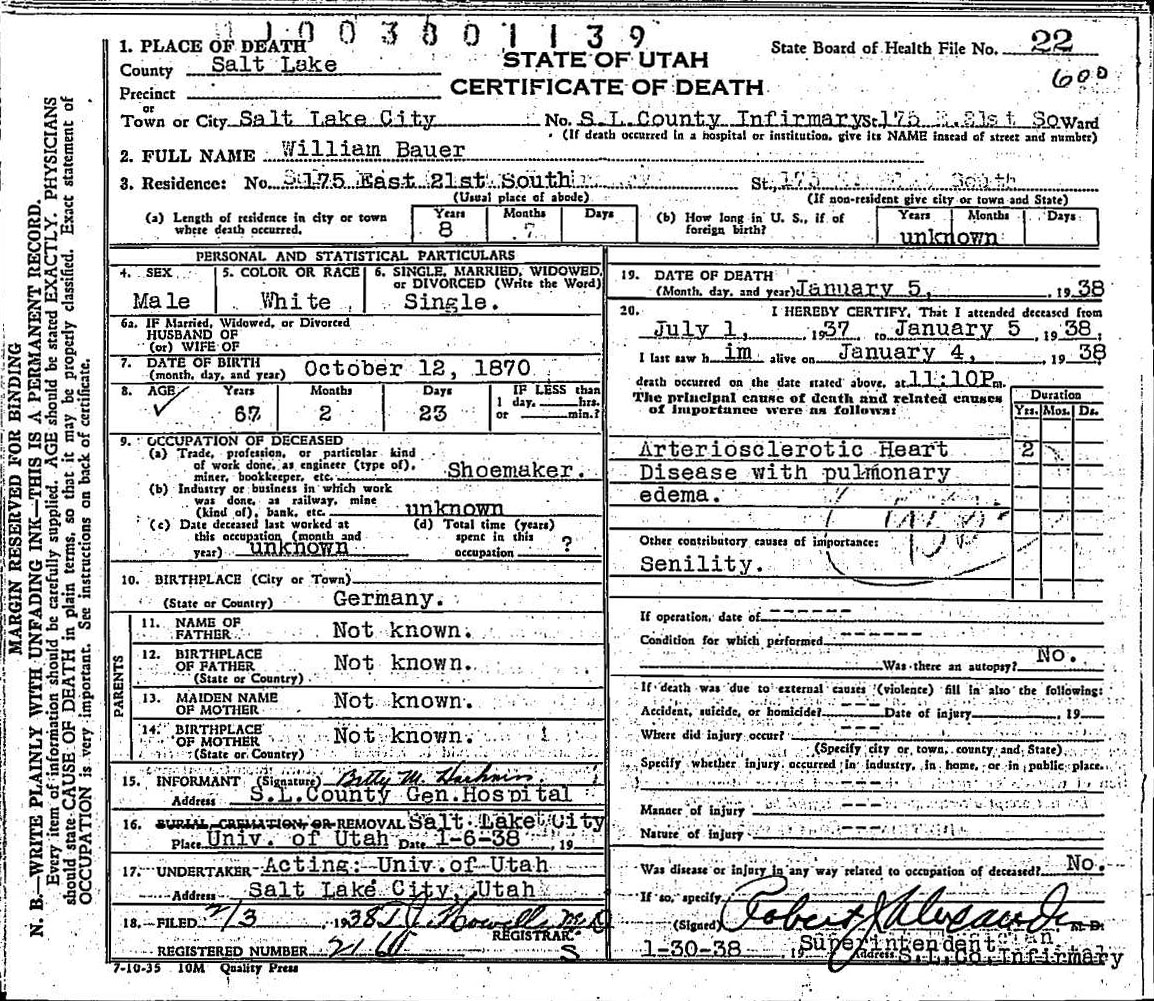 0 0 3 8 0 1 1 3 9
1. PLACE OF DEATH
County Salt Lake
STATE OF UTAH
CERTIFICATE OF DEATH
State Board of Health File No. 22
600
Precinct
or
Town or City Salt Lake City No. S.L.County Infirmary St. 175 E. 21st So Ward
(If death occurred in a hospital or institution, give its NAME insead of street and number)
2. FULL NAME William Bauer
3. Residence: No. 175 East 21st South St., South
(Usual place of abode) (If non-resident give city or town and State)
(a) Length of residence in city or town where death occurred. Years 8 Months 7 Days
(b) How long in U. S., if of foreign birth? Years Months Days unknown
PERSONAL AND STATISTICAL PARTICULARS
4. SEX Male
5. COLOR OR RACE White
6. SINGLE, MARRIED, WIDOWED, or DIVORCED (Write the Word) Single.
6a. IF Married, Widowed, or Divorced
HUSBAND OF
(or) WIFE OF
7. DATE OF BIRTH (month, day, and year) October 12, 1870
8. AGE Years 67 Months 2 Days 23 IF LESS than 1 day, hrs. or min.?
9. OCCUPATION OF DECEASED
(a) Trade, profession, or particular kind
of work done, as engineer (type of),
miner, bookkeeper, etc. Shoemaker.
(b) Industry or business in which work
was done, as railway, mine
(kind of), bank, etc. unknown
(c) Date deceased last worked at
this occupation (month and
year) unknown
(d) Total time (years)
spent in this
occupation ?
10. BIRTHPLACE (City or Town)
(State or Country) Germany.
PARENTS
11. NAME OF FATHER Not known.
12. BIRTHPLACE OF FATHER Not known.
(State or Country)
13. MAIDEN NAME OF MOTHER Not known.
14. BIRTHPLACE OF MOTHER Not known.
(State or Country)
15. INFORMANT (Signature) Betty M.
Address S.L.County Gen.Hospital
16. BURIAL, CREMATION, OR REMOVAL Salt Lake City
Place Univ. of Utah Date 1-6-38 , 19
17. UNDERTAKER Acting: Univ.of Utah
Address Salt Lake City, Utah
18. FILED 2/3 1938 T.J. Howells M.D
REGISTRAR
REGISTERED NUMBER 21 60 S
7-10-35 10M Quality Press
19. DATE OF DEATH
(Month, day, and year) January 5, , 1938
20. I HEREBY CERTIFY, That I attended deceased from
July 1, , 1937 to January 5 , 1938,
I last saw h im alive on January 4, , 1938
death occurred on the date stated above, at 11:10P m.
The principal cause of death and related causes
of importance were as follows:
Duration
Yrs. Mos. Ds.
Arteriosclerotic Heart 2
Disease with pulmonary
edema.
Other contributory causes of importance:
Senility.
If operation, date of ------
Condition for which performed -----
Was there an autopsy? No.
If death was due to external causes (violence) fill in also the following:
Accident, suicide, or homicide? --- Date of injury , 19
Where did injury occur? ---
(Specify city or town, county and State)
Specify whether injury occurred in industry, in home, or in public place.
---
Manner of injury ---
Nature of injury ---
Was disease or injury in any way related to occupation of deceased? No.
If so, specify
(Signed) Robert J Alexander M.D.
Superintendent
1-30-38 19 Address S.L.Co.Infirmary
MARGIN RESERVED FOR BINDING
N. B.—WRITE PLAINLY WITH UNFADING INK—THIS IS A PERMANENT RECORD.
Every item of information should be carefully supplied. AGE should be stated EXACTLY. PHYSICIANS
should state CAUSE OF DEATH in plain terms, so that it may be properly classified. Exact statement of
OCCUPATION is very important. See instructions on back of certificate.